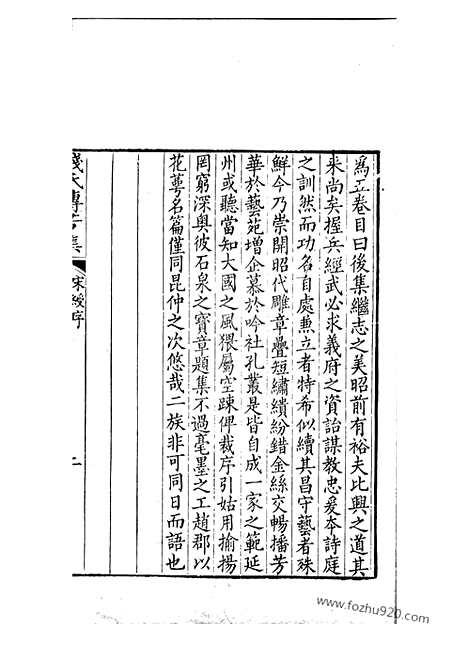 爲五卷目曰後集繼志之美昭前有裕夫比興之道其
來尚矣握兵經武必求義府之資詒謀教忠爰本詩庭
之訓然而功名自處兼立者特希似續其昌守藝者殊
鮮今乃崇開昭代雕章疊短繡繢紛錯金絲交暢播芳
華於藝苑增企慕於吟社孔叢是皆自成一家之範延
州或聽當知大國之風猥屬空踈俾裁序引姑用揄揚
罔窮深奥彼石泉之寳章題集不過毫墨之工趙郡以
花蕚名篇僅同昆仲之次悠哉二族非可同日而語也
錢氏傳芳集
宋綬序
二
www.fozhu920.com